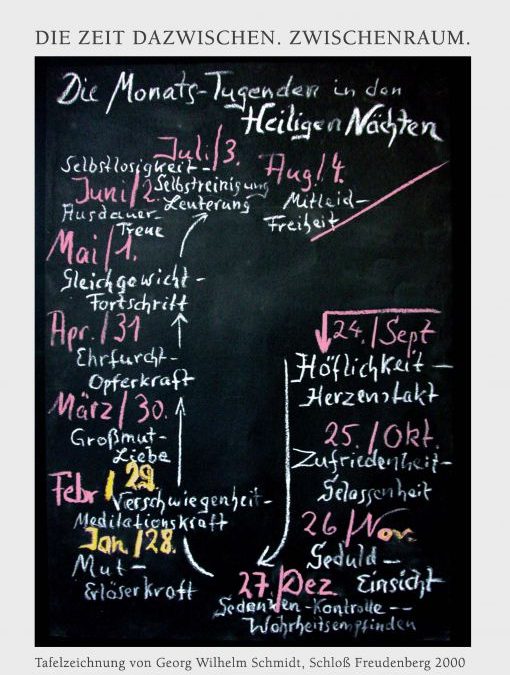 DIE ZEIT DAZWISCHEN. ZWISCHENRAUM.
Die Monats-Tugenden in den
Heiligen Nächten
Juli/3.
Selbstlosigkeit-
Selbstreinigung
Läuterung
Aug/4.
Mitleid-
Freiheit
Juni/2
Ausdauer-
Treue
Mai/1.
Gleichgewicht-
Fortschritt
Apr./31
Ehrfurcht-
Opferkraft
März/30.
Großmut-
Liebe
Febr/29.
Verschwiegenheit-
Meditationskraft
Jan/28.
Mut-
Erlöserkraft
24./Sept
Höflichkeit-
Herzenstakt
25./Okt.
Zufriedenheit-
Gelassenheit
26./Nov.
Geduld-
Einsicht
27./Dez
Gedanken-Kontrolle--
Wahrheitsempfinden
Tafelzeichnung von Georg Wilhelm Schmidt, Schloß Freudenberg 2000